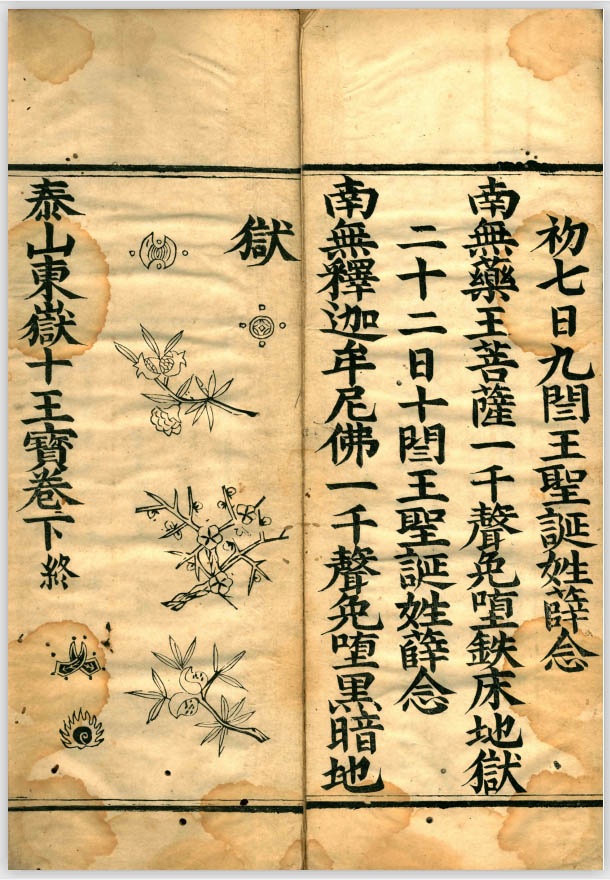 初七日九閆王聖誕姓薛念
南無藥王菩薩一千聲免堕鉄床地獄
二十二日十閆王聖誕姓薛念
南無釋迦牟尼佛一千聲免堕黑暗地
獄
泰山東嶽十王寶卷下終